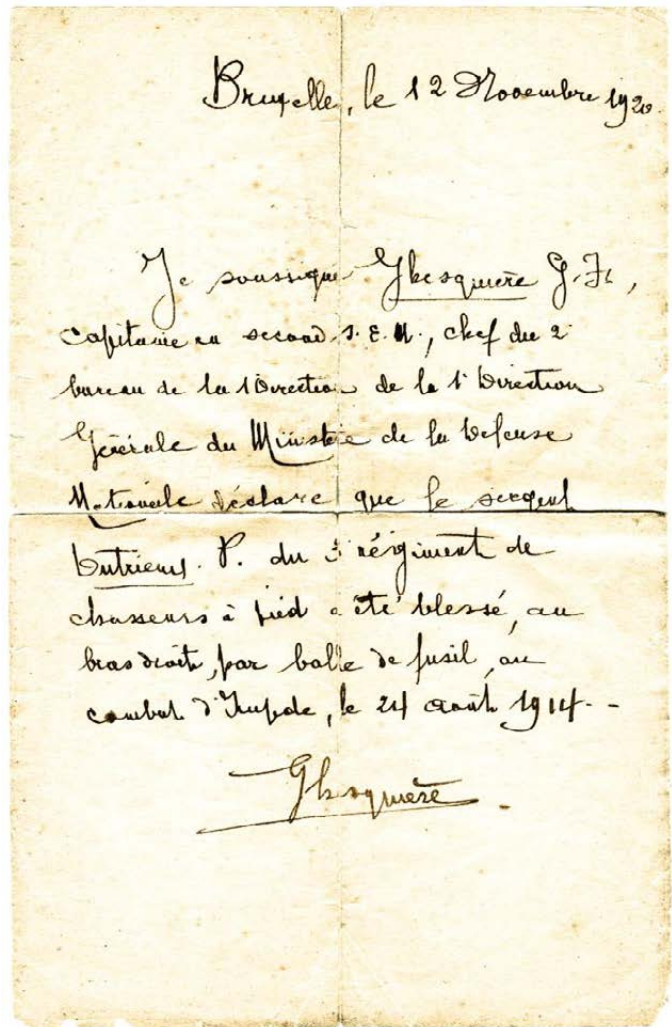 Bruxelle, le 12 Novembre 1920.
Je soussigné Ghesquière G. Fr,
capitaine en second S. E. M., chef du 2
bureau de la 1 Direction de la 1 Direction
Générale du Ministère de la Defense
Nationale déclare que le sergent
P. du 3 régiment de
chasseurs à pied a été blessé, au
bras droit, par balle de fusil, au
combat d'Impde, le 24 août 1914. -
Ghesquière